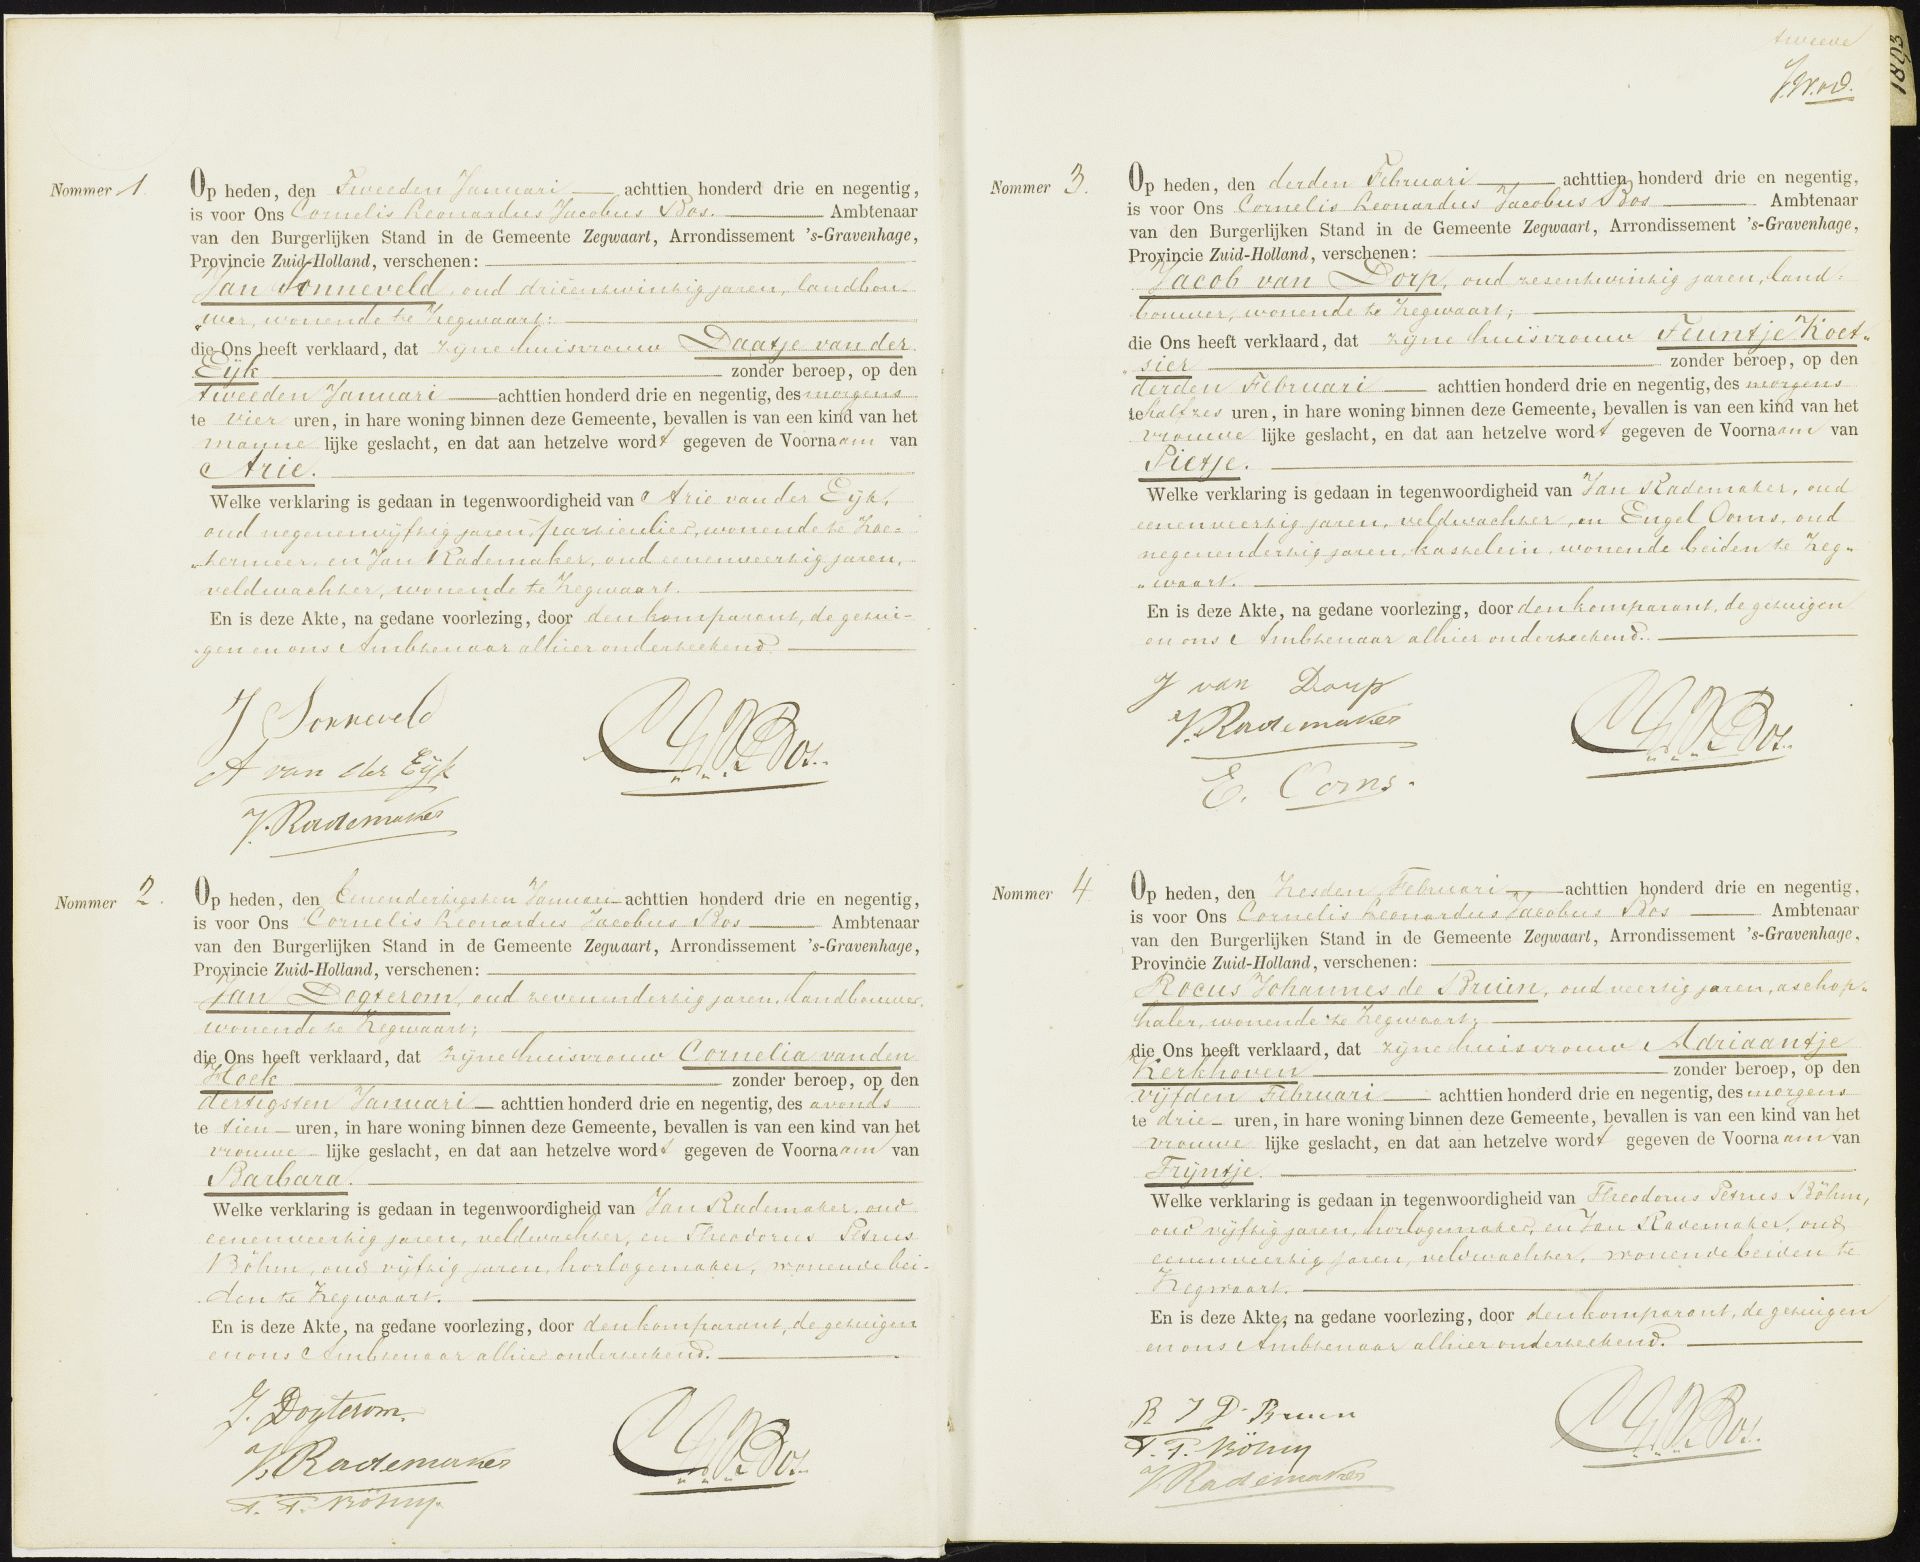 Nommer 1.
Op heden, den Tweeden Januari achttien honderd drie en negentig,
is voor Ons Cornelis Leonardus Jacobus Bos. Ambtenaar
van den Burgerlijken Stand in de Gemeente Zegwaart, Arrondissement 's-Gravenhage,
Provincie Zuid-Holland, verschenen:
Jan Sonneveld, oud drieëntwintig jaren, landbou-
„wer, wonende te Zegwaart;
die Ons heeft verklaard, dat zijne huisvrouw Daatje van der
Eijk zonder beroep, op den
tweeden Januari achttien honderd drie en negentig, des morgens
te vier uren, in hare woning binnen deze Gemeente, bevallen is van een kind van het
manne lijke geslacht, en dat aan hetzelve wordt gegeven de Voornaam van
Arie.
Welke verklaring is gedaan in tegenwoordigheid van Arie van der Eijk,
oud negenenvijftig jaren, particulier, wonende te Zoe-
„termeer, en Jan Rademaker, oud eenenveertig jaren,
veldwachter, wonende te Zegwaart.
En is deze Akte, na gedane voorlezing, door den komparant, de getui-
„gen en ons Ambtenaar alhier onderteekend.
J Sonneveld
A van der Eijk
J. Rademaker
CLJBos.
Nommer 2.
Op heden, den Eenendertigsten Januari achttien honderd drie en negentig,
is voor Ons Cornelis Leonardus Jacobus Bos Ambtenaar
van den Burgerlijken Stand in de Gemeente Zegwaart, Arrondissement 's-Gravenhage,
Provincie Zuid-Holland, verschenen:
Jan Dogterom, oud zevenendertig jaren, landbouwer,
wonende te Zegwaart;
die Ons heeft verklaard, dat zijne huisvrouw Cornelia van den
Hoek zonder beroep, op den
dertigsten Januari achttien honderd drie en negentig, des avonds
te tien uren, in hare woning binnen deze Gemeente, bevallen is van een kind van het
vrouwe lijke geslacht, en dat aan hetzelve wordt gegeven de Voornaam van
Barbara.
Welke verklaring is gedaan in tegenwoordigheid van Jan Rademaker, oud
eenenveertig jaren, veldwachter, en Theodorus Petrus
Böhm, oud vijftig jaren, horlogemaker, wonende bei-
den te Zegwaart.
En is deze Akte, na gedane voorlezing, door den komparant, de getuigen
en ons Ambtenaar alhier onderteekend.
J. Dogterom.
J. Rademaker
T. P. Böhm.
CLJBos.
tweede
1893
Nommer 3.
Op heden, den derden Februari achttien honderd drie en negentig,
is voor Ons Cornelis Leonardus Jacobus Bos Ambtenaar
van den Burgerlijken Stand in de Gemeente Zegwaart, Arrondissement 's-Gravenhage,
Provincie Zuid-Holland, verschenen:
Jacob van Dorp, oud zesentwintig jaren, land-
bouwer, wonende te Zegwaart;
die Ons heeft verklaard, dat zijne huisvrouw Teuntje Koet-
„sier zonder beroep, op den
derden Februari achttien honderd drie en negentig, des morgens
te half zes uren, in hare woning binnen deze Gemeente, bevallen is van een kind van het
vrouwe lijke geslacht, en dat aan hetzelve wordt gegeven de Voornaam van
Pietje.
Welke verklaring is gedaan in tegenwoordigheid van Jan Rademaker, oud
eenenveertig jaren, veldwachter, en Engel Ooms, oud
negenendertig jaren, kastelein, wonende beiden te Zeg-
„waart.
En is deze Akte, na gedane voorlezing, door den komparant, de getuigen
en ons Ambtenaar alhier onderteekend.
J van Dorp
J. Rademaker
E. Ooms.
CLJBos.
Nommer 4
Op heden, den Zesden Februari achttien honderd drie en negentig,
is voor Ons Cornelis Leonardus Jacobus Bos Ambtenaar
van den Burgerlijken Stand in de Gemeente Zegwaart, Arrondissement 's-Gravenhage,
Provincie Zuid-Holland, verschenen:
Rocus Johannes de Bruin, oud veertig jaren, aschop-
haler, wonende te Zegwaart;
die Ons heeft verklaard, dat zijne huisvrouw Adriaantje
Kerkhoven zonder beroep, op den
vijfden Februari achttien honderd drie en negentig, des morgens
te drie uren, in hare woning binnen deze Gemeente, bevallen is van een kind van het
vrouwe lijke geslacht, en dat aan hetzelve wordt gegeven de Voornaam van
Trijntje.
Welke verklaring is gedaan in tegenwoordigheid van Theodorus Petrus Böhm,
oud vijftig jaren, horlogemaker, en Jan Rademaker, oud
eenenveertig jaren, veldwachter, wonende beiden te
Zegwaart.
En is deze Akte, na gedane voorlezing, door den komparant, de getuigen
en ons Ambtenaar alhier onderteekend.
R J D Bruin
T. P. Böhm
J. Rademaker
CLJBos.